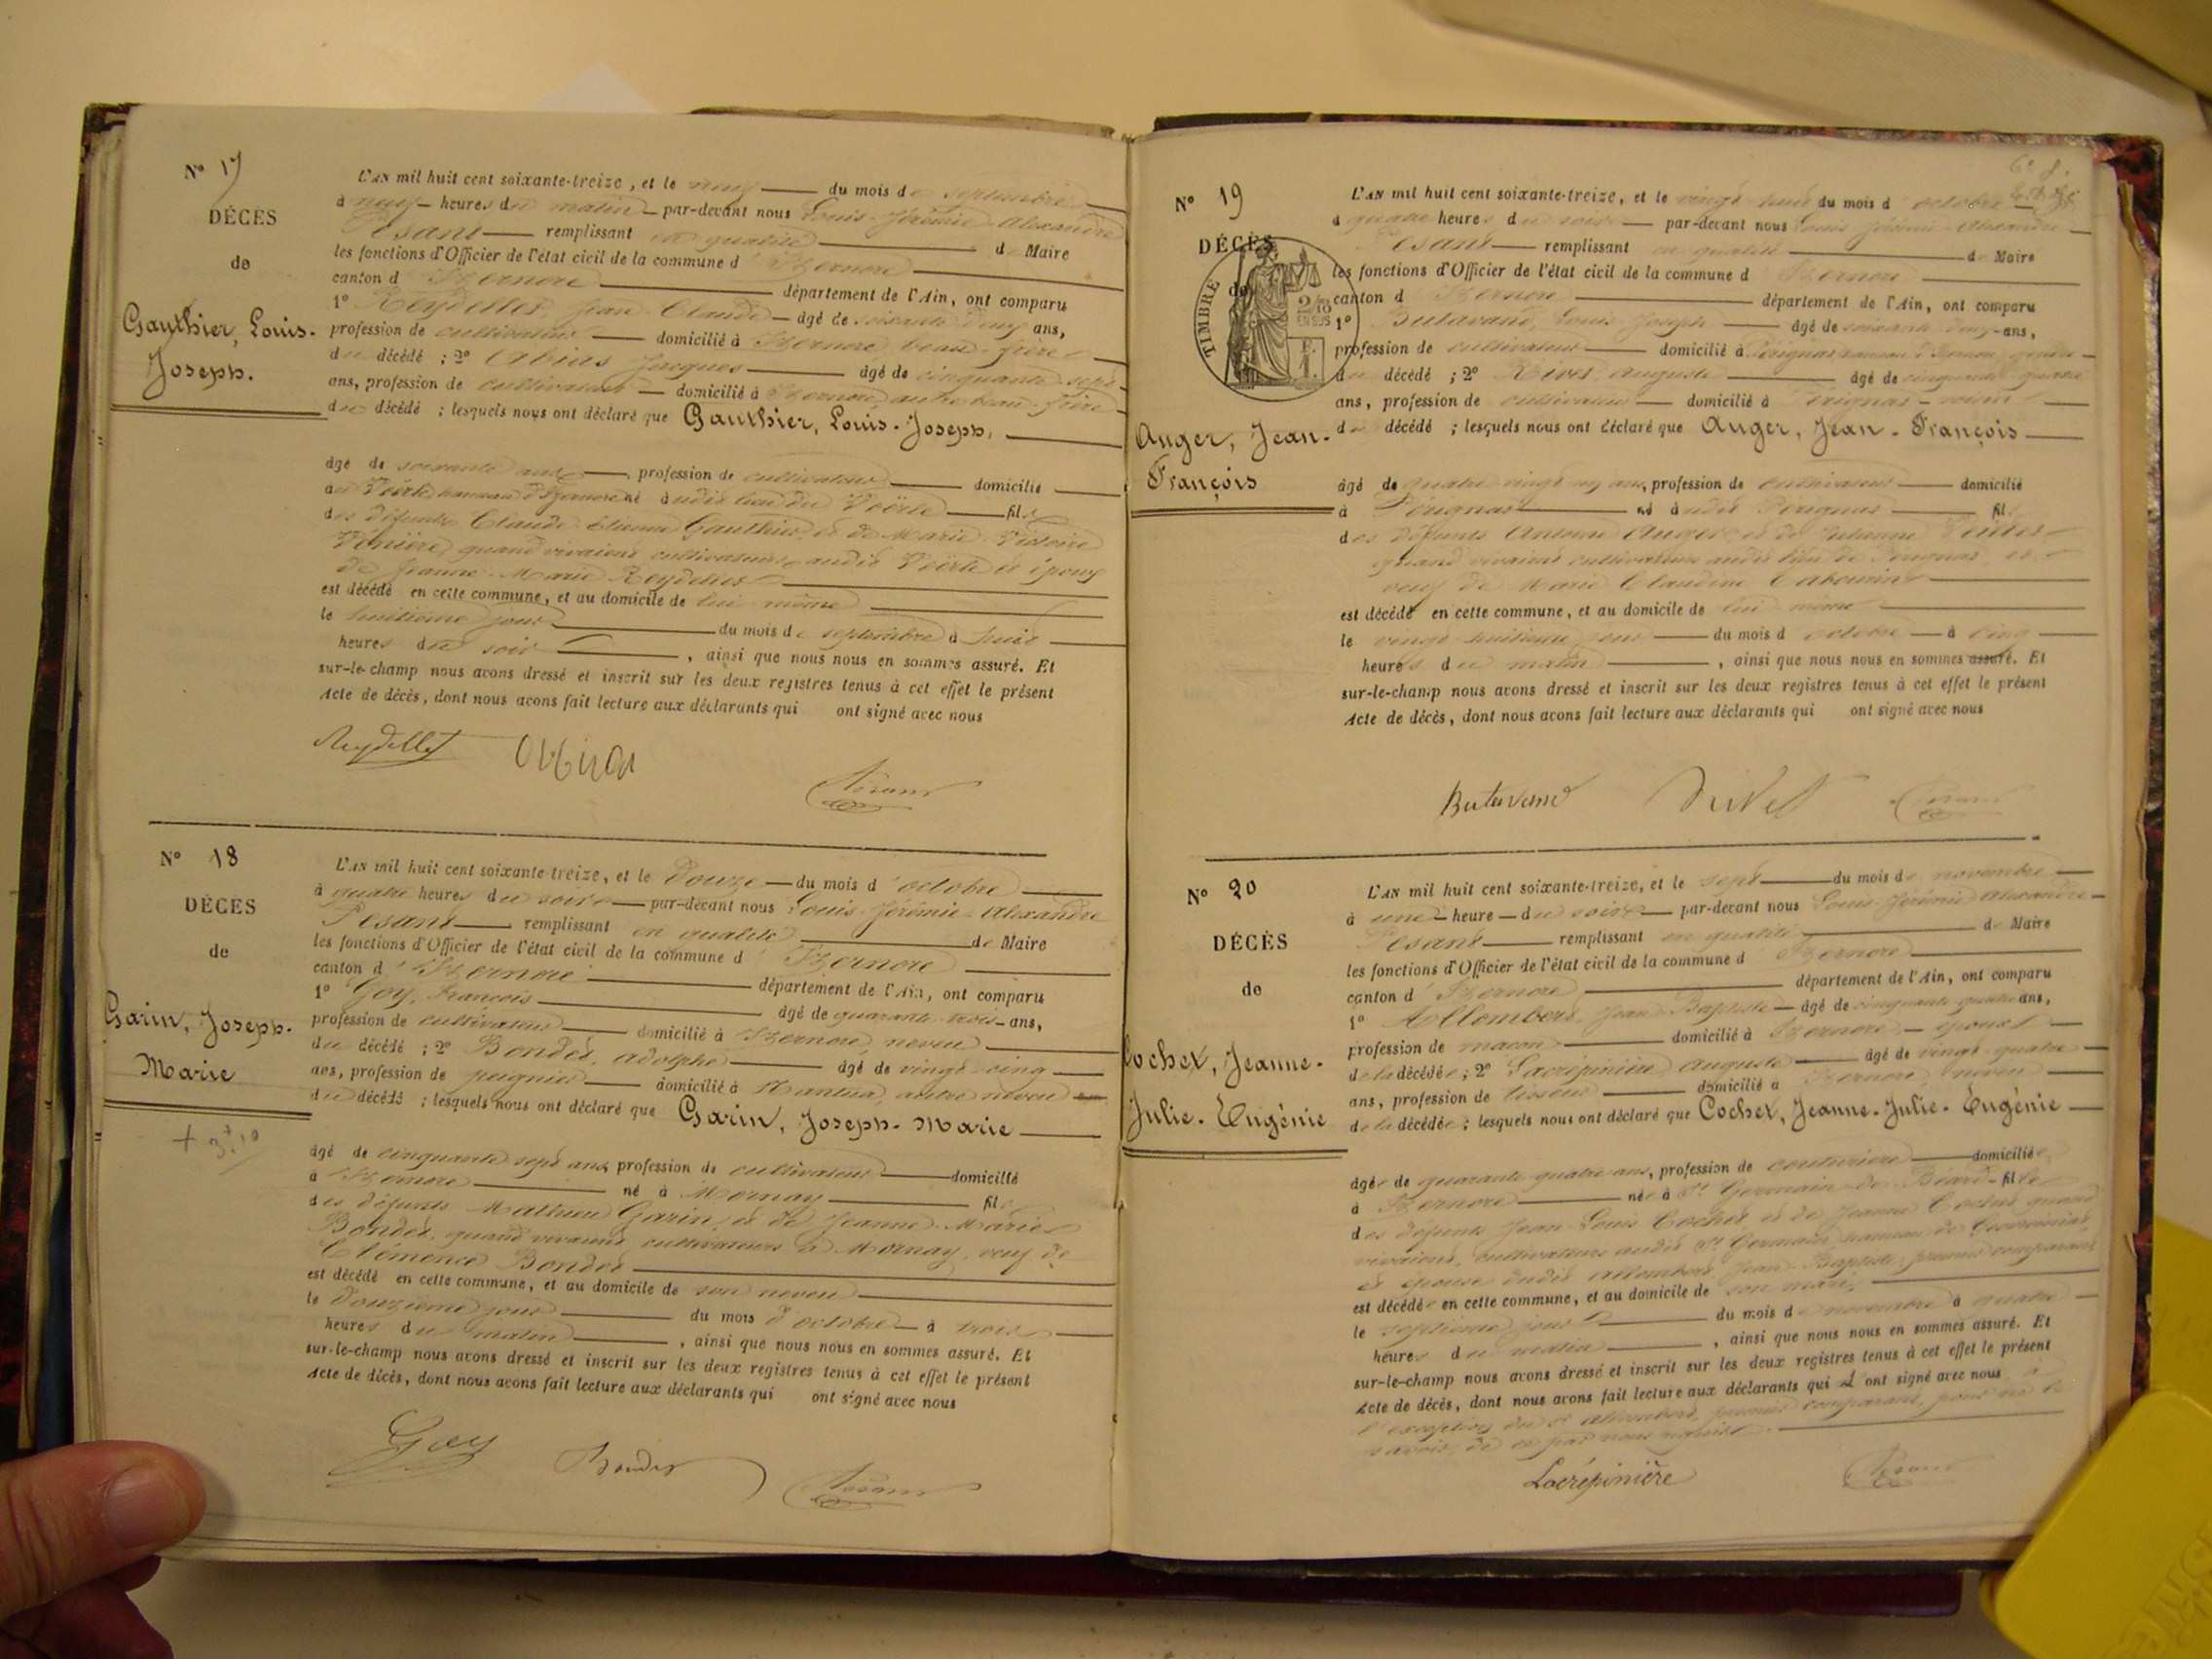 N° 17
DÉCÈS
de
Gauthier, Louis-
Joseph.
L'AN mil huit cent soixante-treize, et le neuf du mois de septembre
à neuf heures du matin par-devant nous Louis-Jérémie-Alexandre
Pesant remplissant en qualité de Maire
les fonctions d'Officier de l'état civil de la commune d'Izernore
canton d'Izernore département de l'Ain, ont comparu
1° Reydellet, Jean-Claude âgé de soixante deux ans,
profession de cultivateur domicilié à Izernore beau-frère
du décédé ; 2° Jacques âgé de cinquante-sept
ans, profession de cultivateur domicilié à Izernore, autre beau-frère
du décédé ; lesquels nous ont déclaré que Gauthier, Louis-Joseph,
âgé de soixante ans profession de cultivateur domicilié
au hameau d'Izernore né audit lieu du fils
des défunts Claude Étienne Gauthier et de Marie Victoire
quand vivaient cultivateurs audit et époux
de Jeanne-Marie Reydellet
est décédé en cette commune, et au domicile de lui-même
le huitième jour du mois de septembre à huit
heures du soir, ainsi que nous nous en sommes assuré. Et
sur-le-champ nous avons dressé et inscrit sur les deux registres tenus à cet effet le présent
Acte de décès, dont nous avons fait lecture aux déclarants qui ont signé avec nous
Reydellet
N° 18
DÉCÈS
de
Garin, Joseph-
Marie
L'AN mil huit cent soixante-treize, et le douze du mois d'octobre
à quatre heures du soir par-devant nous Louis-Jérémie-Alexandre
Pesant remplissant en qualité de Maire
les fonctions d'Officier de l'état civil de la commune d'Izernore
canton d'Izernore département de l'Ain, ont comparu
1° Goy, François âgé de quarante-trois ans,
profession de cultivateur domicilié à Izernore, neveu
du décédé ; 2° Bondet, Adolphe âgé de vingt-cinq
ans, profession de peignier domicilié à Nantua, autre neveu
du décédé ; lesquels nous ont déclaré que Garin, Joseph-Marie
âgé de cinquante-sept ans, profession de cultivateur domicilié
à Izernore né à Mornay fils
des défunts Mathieu Garin, et de Jeanne-Marie
Bondet, quand vivaient cultivateurs à Mornay, veuf de
Clémence Bondet
est décédé en cette commune, et au domicile de son neveu
le douzième jour du mois d'octobre à trois
heures du matin, ainsi que nous nous en sommes assuré. Et
sur-le-champ nous avons dressé et inscrit sur les deux registres tenus à cet effet le présent
Acte de décès, dont nous avons fait lecture aux déclarants qui ont signé avec nous
Goy Bondet
N° 19
DÉCÈS
de
TIMBRE
2/10
EN SUS
Auger, Jean-
François
L'AN mil huit cent soixante-treize, et le vingt huit du mois d'octobre
à quatre heures du soir par-devant nous Louis-Jérémie-Alexandre
Pesant remplissant en qualité de Maire
les fonctions d'Officier de l'état civil de la commune d'Izernore
canton d'Izernore département de l'Ain, ont comparu
1° Butavand, Louis-Joseph âgé de soixante ans,
profession de cultivateur domicilié à Pérignat hameau d'Izernore
du décédé ; 2° Rivet, Auguste âgé de cinquante quatre
ans, profession de cultivateur domicilié à Pérignat
du décédé ; lesquels nous ont déclaré que Auger, Jean-François
âgé de quatre-vingt ans, profession de cultivateur domicilié
à Pérignat né audit Pérignat fils
des défunts Antoine Auger et de Julienne
quand vivaient cultivateurs audit lieu de Pérignat, et
veuf de Marie Claudine
est décédé en cette commune, et au domicile de lui-même
le vingt-huitième jour du mois d'octobre à cinq
heures du matin, ainsi que nous nous en sommes assuré. Et
sur-le-champ nous avons dressé et inscrit sur les deux registres tenus à cet effet le présent
Acte de décès, dont nous avons fait lecture aux déclarants qui ont signé avec nous
Butavand Rivet
N° 20
DÉCÈS
de
Cochet, Jeanne-
Julie-Eugénie
L'AN mil huit cent soixante-treize, et le sept du mois de novembre
à une heure du soir par-devant nous Louis-Jérémie-Alexandre
Pesant remplissant en qualité de Maire
les fonctions d'Officier de l'état civil de la commune d'Izernore
canton d'Izernore département de l'Ain, ont comparu
1° Allombert, Jean-Baptiste âgé de cinquante-quatre ans,
profession de maçon domicilié à Izernore époux
de la décédée ; 2° Lacrépinière, Auguste âgé de vingt-quatre
ans, profession de tisseur domicilié à Izernore neveu
de la décédée ; lesquels nous ont déclaré que Cochet, Jeanne-Julie-Eugénie
âgée de quarante-quatre ans, profession de couturière domiciliée
à Izernore née à St Germain-de-Béard fille
des défunts Jean-Louis Cochet et de Jeanne Cochet quand
vivaient, cultivateurs audit St Germain, hameau de Géovreissiat
et épouse dudit Allombert Jean-Baptiste premier comparant
est décédée en cette commune, et au domicile de son mari,
le septième jour du mois de novembre à quatre
heures du matin, ainsi que nous nous en sommes assuré. Et
sur-le-champ nous avons dressé et inscrit sur les deux registres tenus à cet effet le présent
Acte de décès, dont nous avons fait lecture aux déclarants qui ont signé avec nous à
l'exception du sr Allombert, premier comparant, pour ne le
savoir, de ce par nous requis.
Lacrépinière